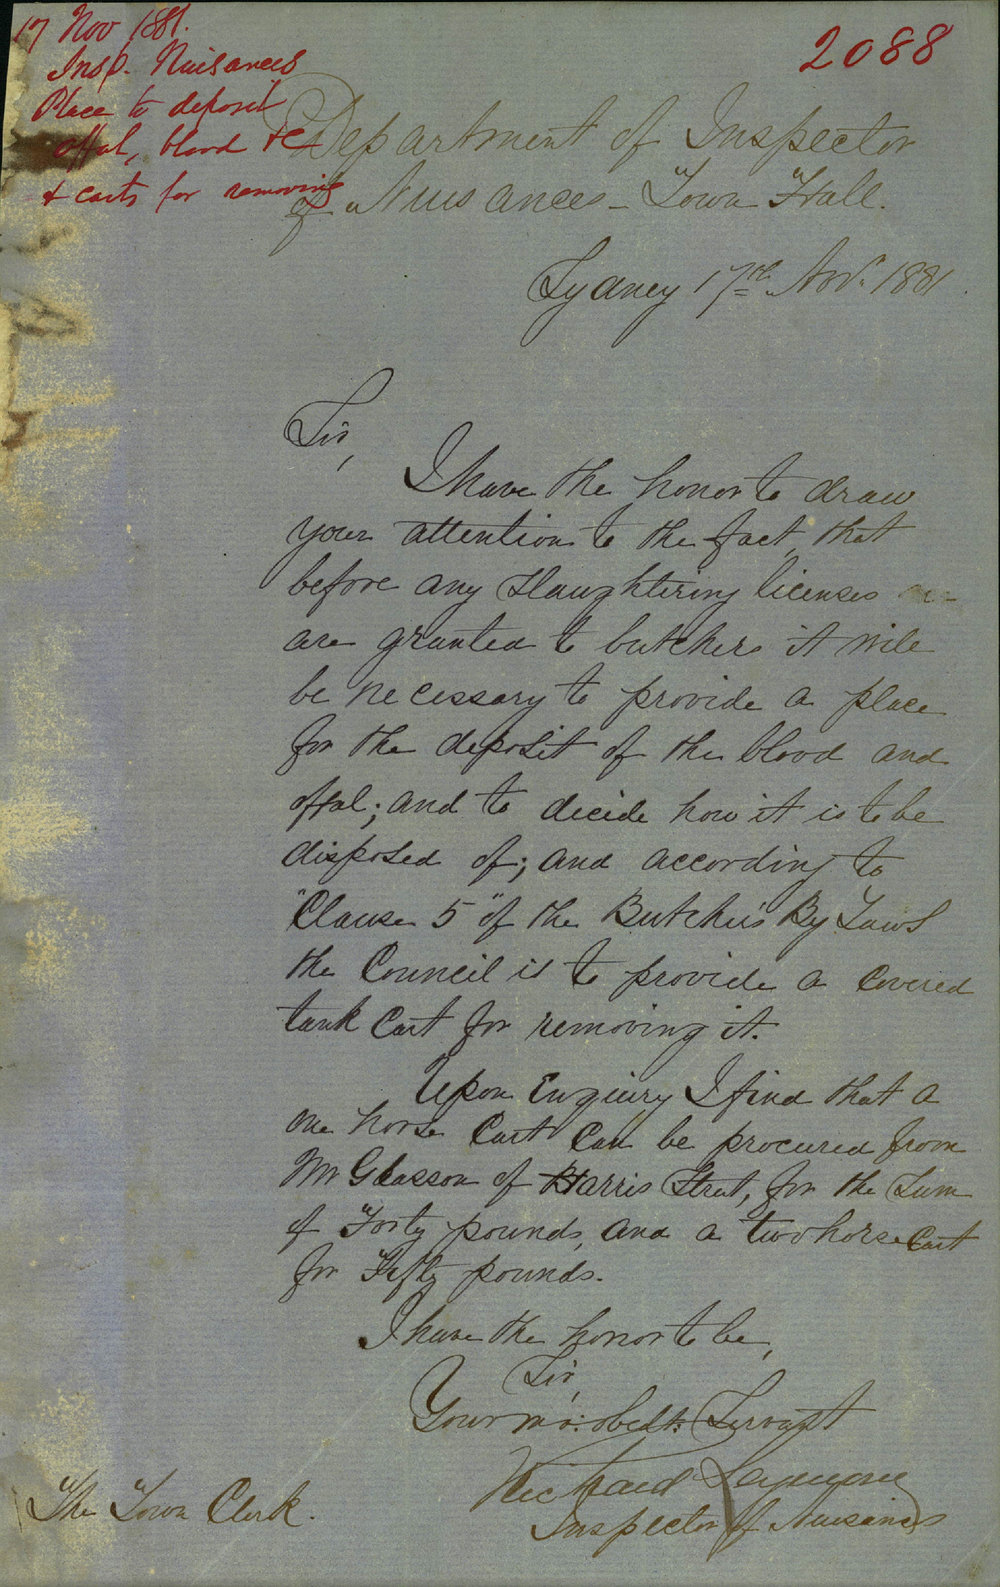 17 Nov 1881.
Insp. Nuisances
Place to deposit
offal, blood &c
& carts for removing
2088
Department of Inspector
of Nuisances – Town Hall.
Sydney 17th Nov. 1881.
Sir,
I have the honor to draw
your attention to the fact, that
before any slaughtering licenses
are granted to butchers it will
be necessary to provide a place
for the deposit of the blood and
offal; and to decide how it is to be
disposed of; and according to
"Clause 5" of the Butchers By Laws
the Council is to provide a covered
tank cart for removing it.
Upon Enquiry I find that a
one horse cart can be procured from
Mr Glasson of Harris Street, for the Sum
of Forty pounds, and a two horse Cart
for Fifty pounds.
I have the honor to be,
Sir,
Your mo: obedt: Servant
Richard Seymour
Inspector of Nuisances
The Town Clerk.